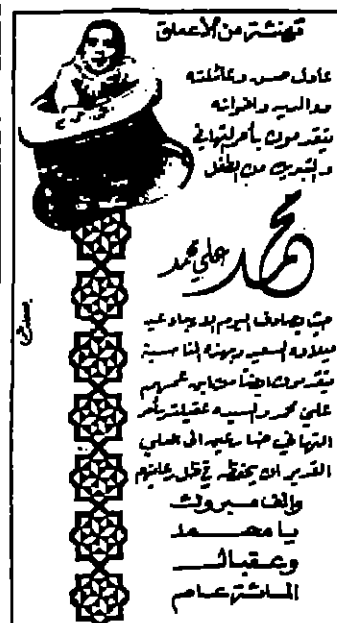 تهنئة من الأعماق
عادل حسن وعائلته
ووالديه واخوانه
يتقدمون بأحر التهاني
والتبريك من الطفل
محمد علي محمد
حيث يصادف اليوم الاربعاء عيد
ميلاده السعيد وبهذه المناسبة
يتقدمون ايضا من ابن عمهم
علي محمد والسيدة عقيلته بأحر
التهاني ضارعين الى العلي
القدير ان يحفظه في ظل رعايتهم
والف مبروك
يا محمد
وعقبال
المائة عام